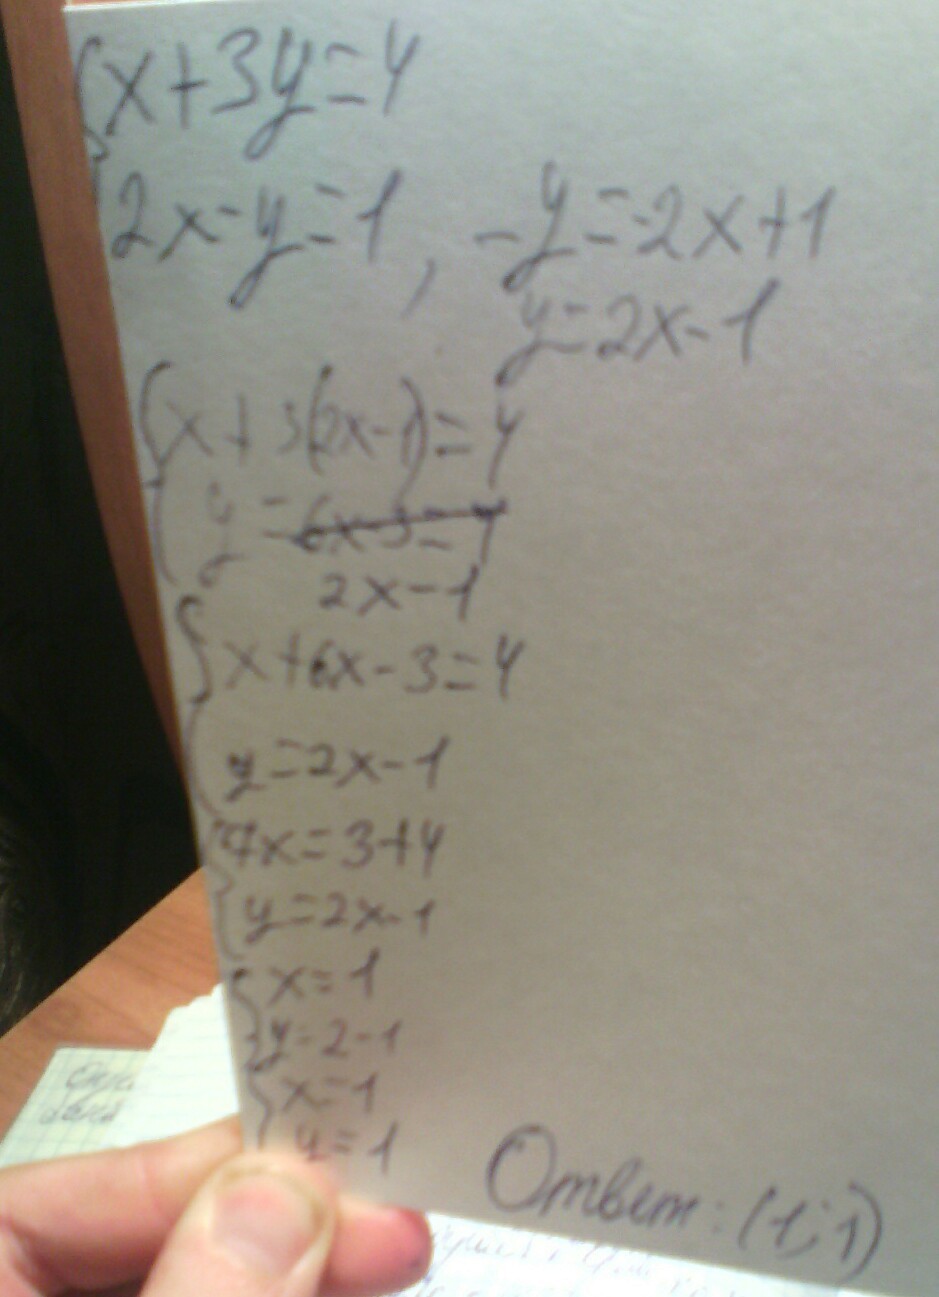 x+3y=4
2x-y=1, -y=-2x+1
y=2x-1
x+3(2x-1)=4
y=6x-3=4
2x-1
x+6x-3=4
y=2x-1
7x=3+4
y=2x-1
x=1
y=2-1
x=1
y=1
Ответ: (1;1)